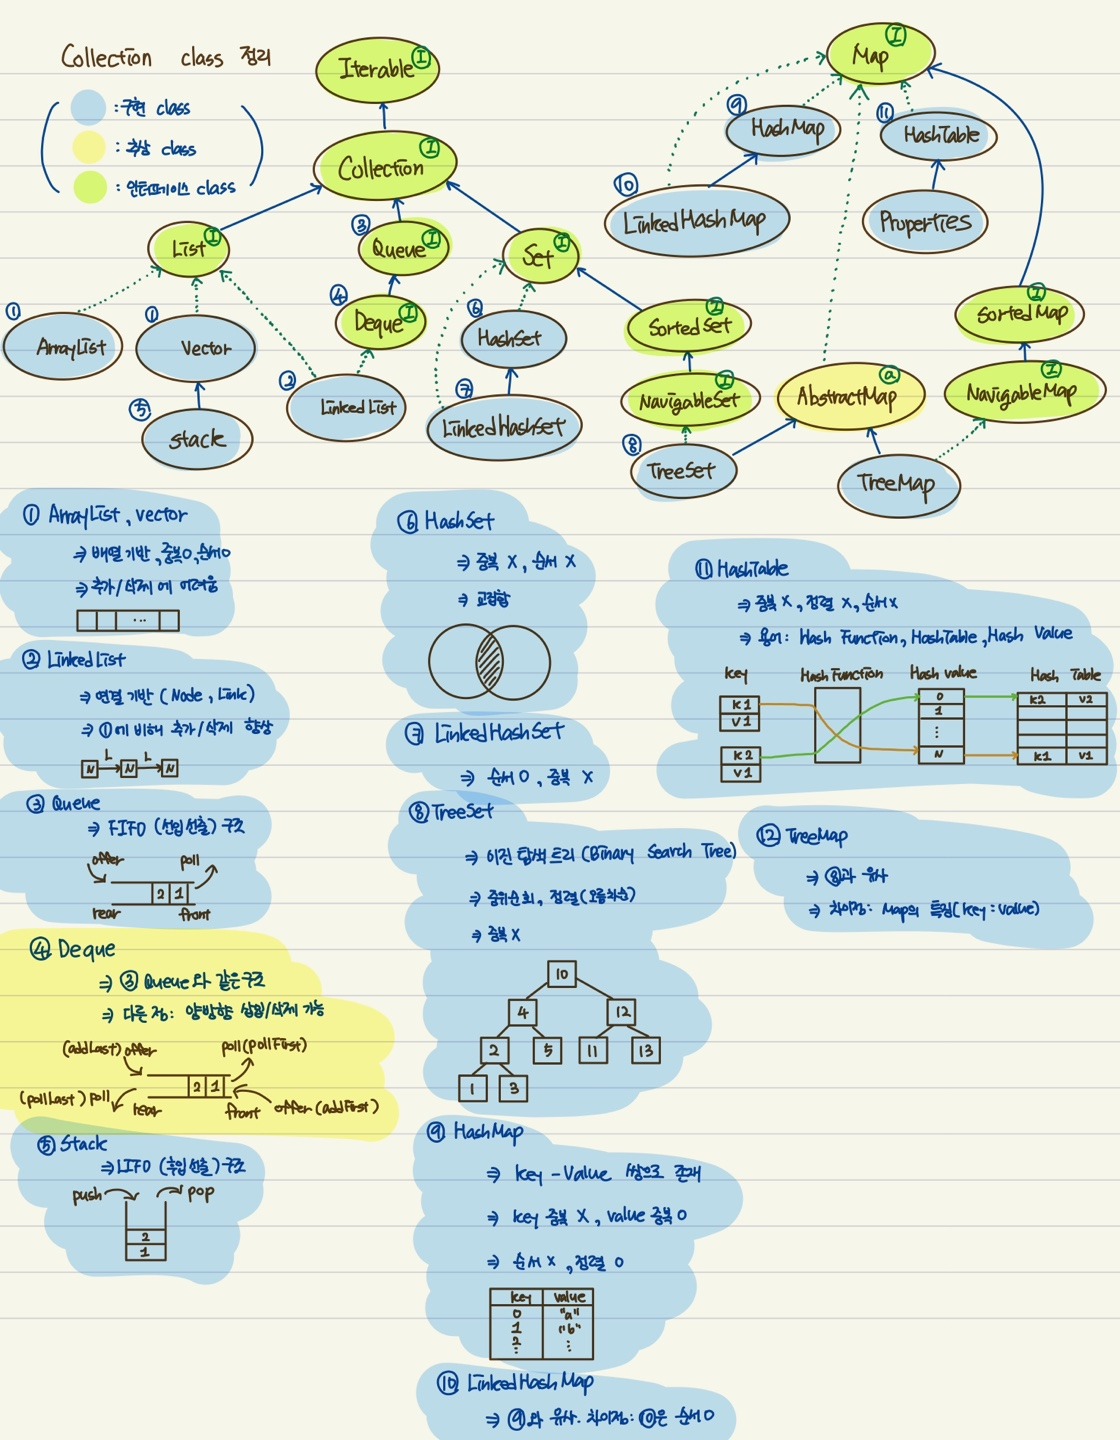 Collection class 정리
: 구현 class
: 추상 class
: 인터페이스 class
Iterable I
Collection I
List I
③ Queue I
Set I
④ Deque I
① ArrayList
① Vector
② LinkedList
⑤ stack
⑥ HashSet
⑦ LinkedHashSet
SortedSet I
NavigableSet I
⑧ TreeSet
Map I
⑨ HashMap
⑩ LinkedHashMap
⑪ HashTable
Properties
SortedMap I
AbstractMap a
NavigableMap I
TreeMap
① ArrayList, vector
⇒ 배열 기반, 중복O, 순서O
⇒ 추가/삭제에 어려움
...
② LinkedList
⇒ 연결 기반 (Node, Link)
⇒ ①에 비해 추가/삭제 향상
L L
N N N
③ Queue
⇒ FIFO (선입선출) 구조
offer poll
2 1
rear front
④ Deque
⇒ ③ Queue와 같은 구조
⇒ 다른점: 양방향 삽입/삭제 가능
(addLast) offer poll(pollFirst)
2 1
(pollLast) poll rear front offer (addFirst)
⑤ Stack
⇒ LIFO (후입선출) 구조
push pop
2
1
⑥ HashSet
⇒ 중복 X, 순서 X
⇒ 교집합
⑦ LinkedHashSet
⇒ 순서 O, 중복 X
⑧ TreeSet
⇒ 이진 탐색 트리 (Binary Search Tree)
⇒ 중위순회, 정렬(오름차순)
⇒ 중복 X
10
4 12
2 5 11 13
1 3
⑨ HashMap
⇒ key - Value 쌍으로 존재
⇒ key 중복 X, value 중복 O
⇒ 순서 X, 정렬 O
key value
0 "a"
1 "b"
2 ⋮
⋮
⑩ LinkedHashMap
⇒ ⑨와 유사. 차이점: ⑩은 순서 O
⑪ HashTable
⇒ 중복 X, 정렬 X, 순서 X
⇒ 용어: Hash Function, HashTable, Hash Value
key Hash Function Hash value Hash Table
K1 0 K2 V2
V1 1
⋮
K2 N K1 V1
V1
⑫ TreeMap
⇒ ⑧과 유사
⇒ 차이점: Map의 특징(key : value)